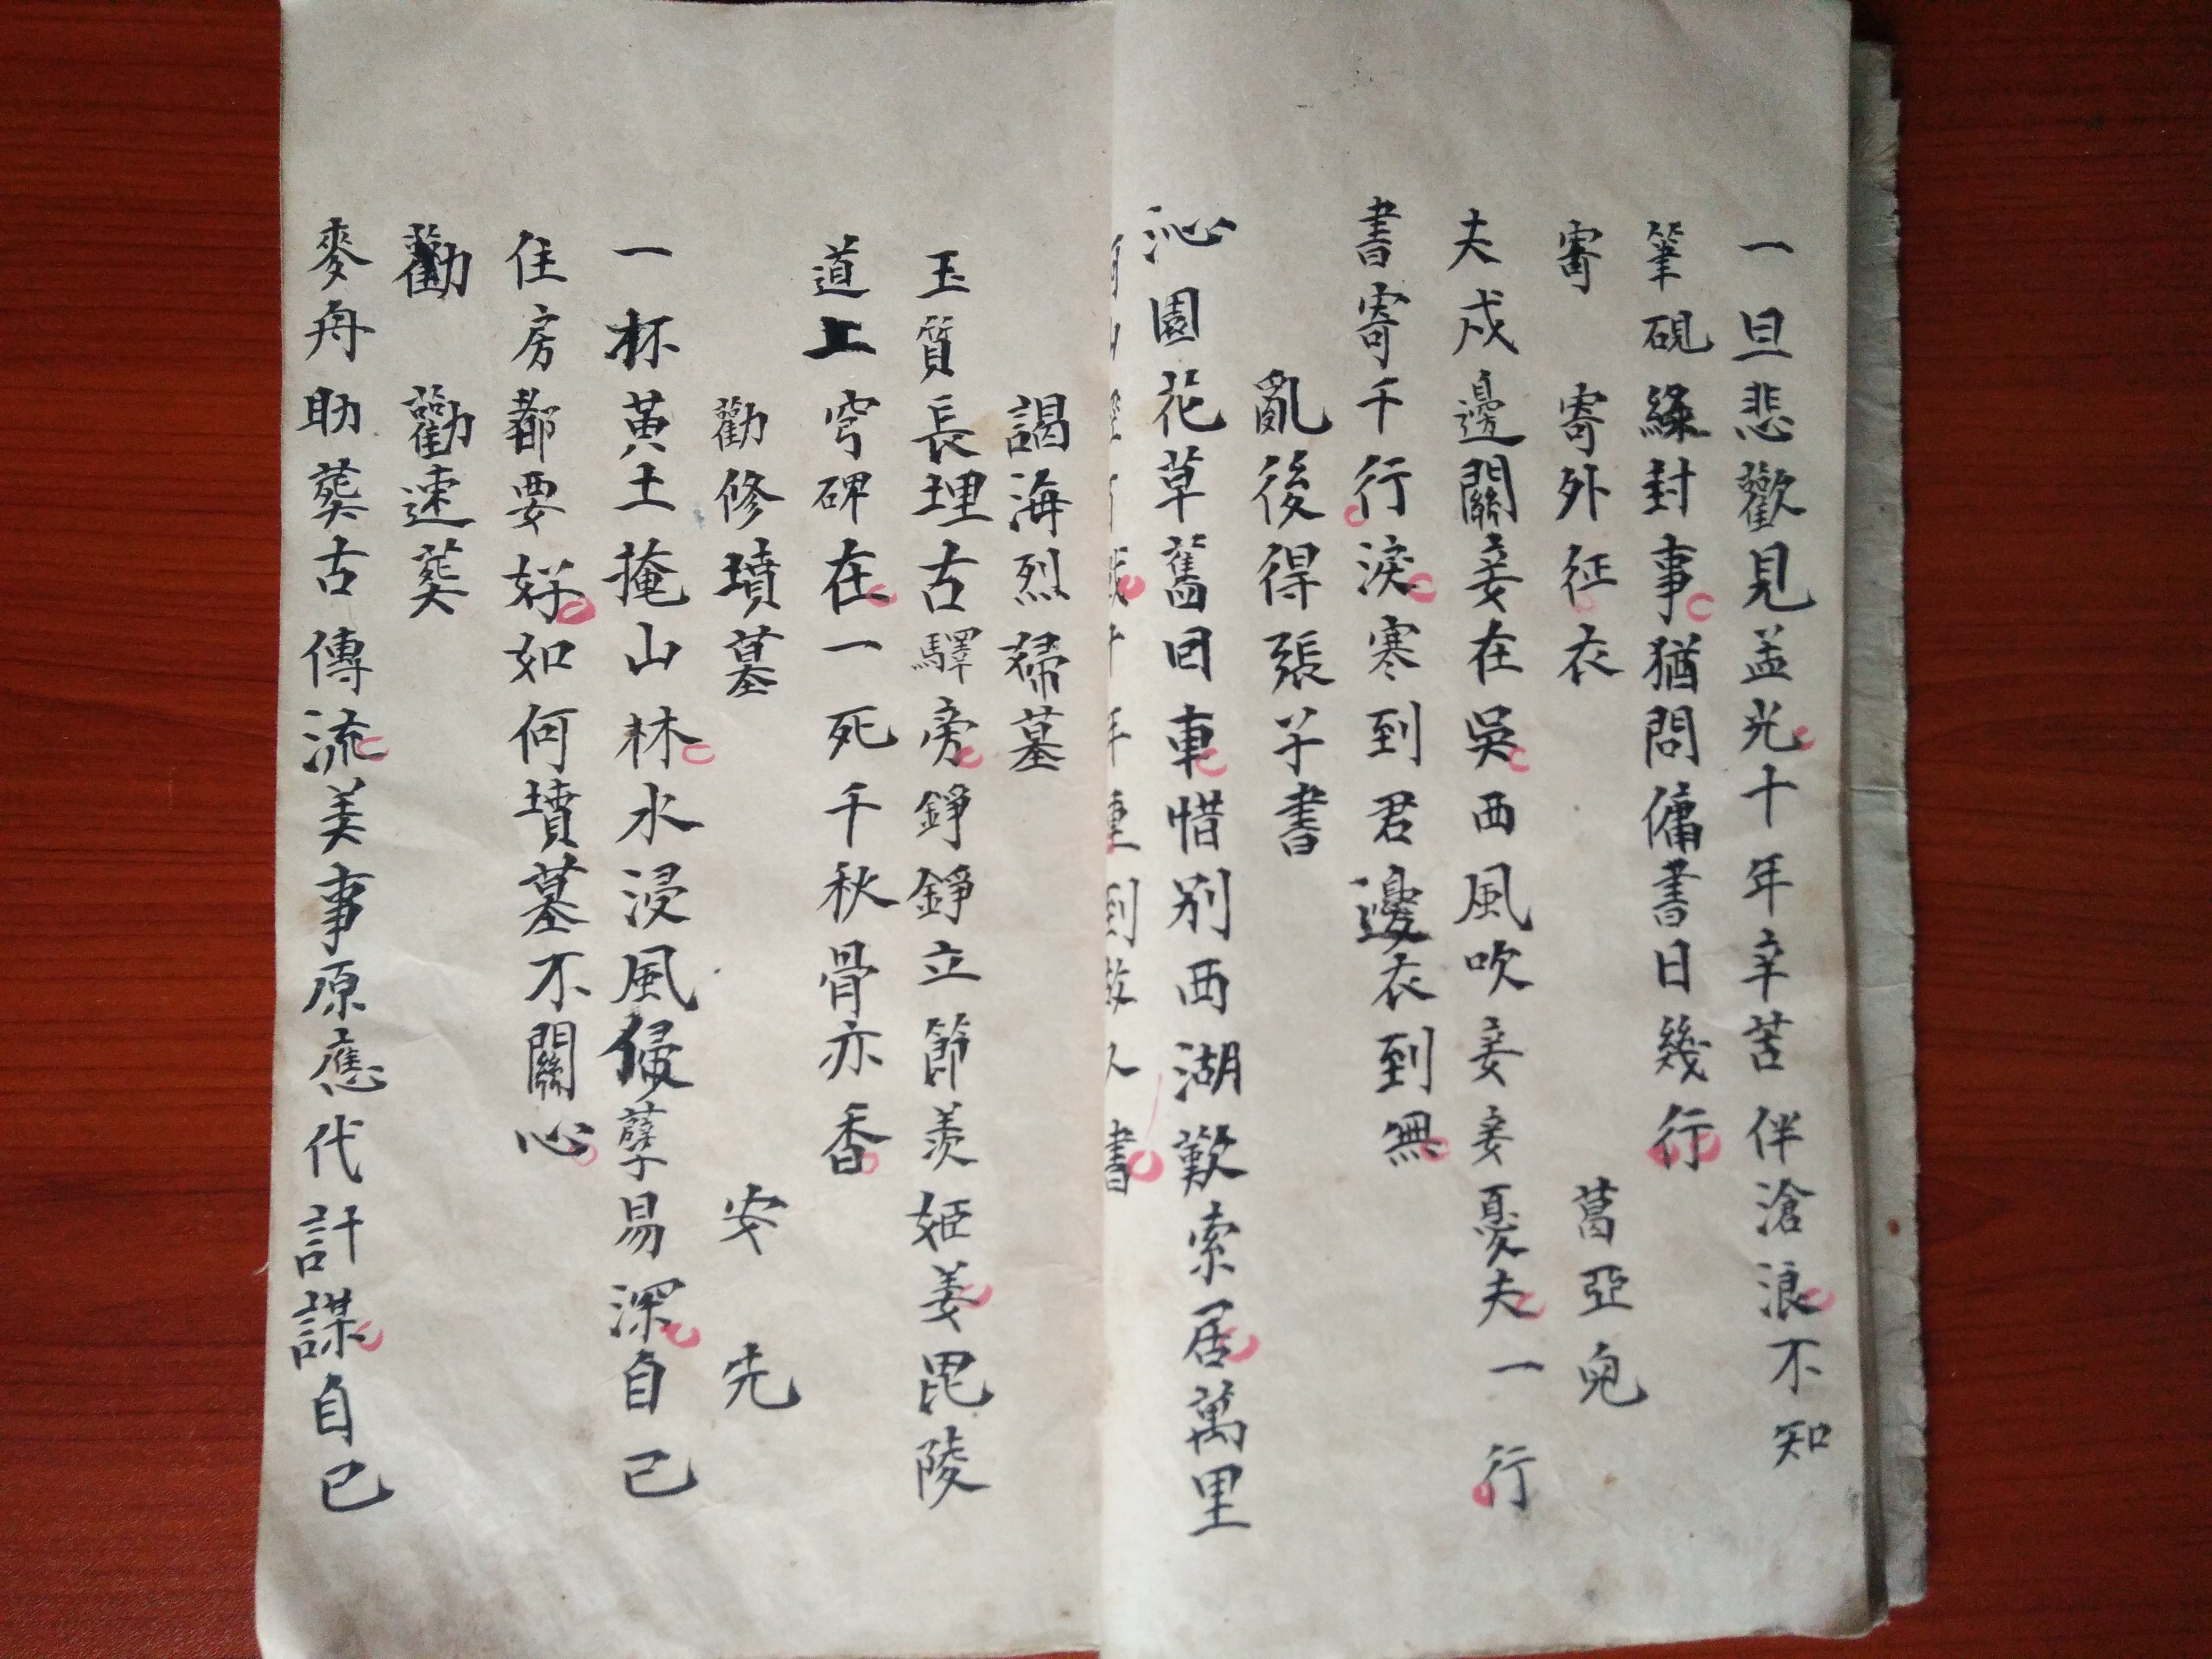 一旦悲歡見孟光十年辛苦伴滄浪不知
筆硯緣封事猶問傭書日幾行
寄　寄外征衣　葛亞兒
夫戍邊關妾在吳西風吹妾妾憂夫一行
書寄千行淚寒到君邊衣到無
亂後得張子書
沁園花草舊回車惜別西湖歎索居萬里
年重到故人書
謁海烈婦墓
玉質長埋古驛旁錚錚立節羨姬姜毘陵
道上穹碑在一死千秋骨亦香
勸修墳墓　安先
一杯黃土掩山林水浸風侵孽易深自己
住房都要好如何墳墓不關心
勸　勸速葬
麥舟助葬古傳流美事原應代計謀自己